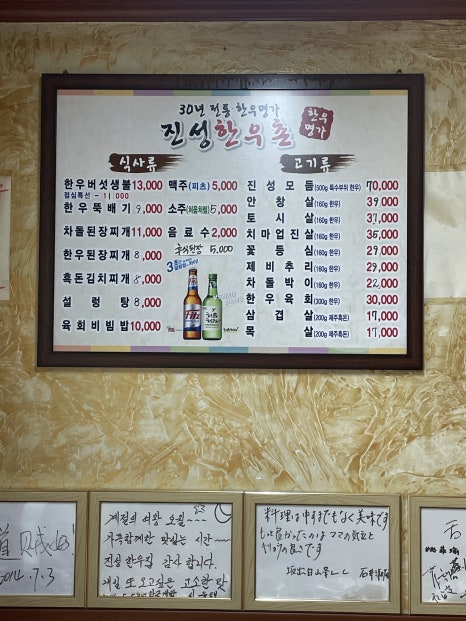 30년 전통·한우명가
진성한우촌
한우
명가
식사류
한우버섯생불 13,000
점심특선 - 11,000
한우뚝배기 9,000
차돌된장찌개 11,000
한우된장찌개 8,000
흑돈김치찌개 8,000
설렁탕 8,000
육회비빔밥 10,000
맥주(피츠) 5,000
소주(처음처럼) 5,000
음료수 2,000
후식된장 5,000
고기류
진성모듬(500g 특수부위 한우) 70,000
안창살(160g 한우) 39,000
토시살(160g 한우) 37,000
치마업진살(160g 한우) 35,000
꽃등심(160g 한우) 29,000
제비추리(160g 한우) 29,000
차돌박이(160g 한우) 22,000
한우육회(300g 한우) 30,000
삼겹살(200g 제주흑돈) 17,000
목살(200g 제주흑돈) 17,000
Fitz
2014.7.3
계절의 여왕 오월~~~
가족함께한 맛있는 시간~
진성 한우집 감사합니다.
料理は申すまでもなく美味です